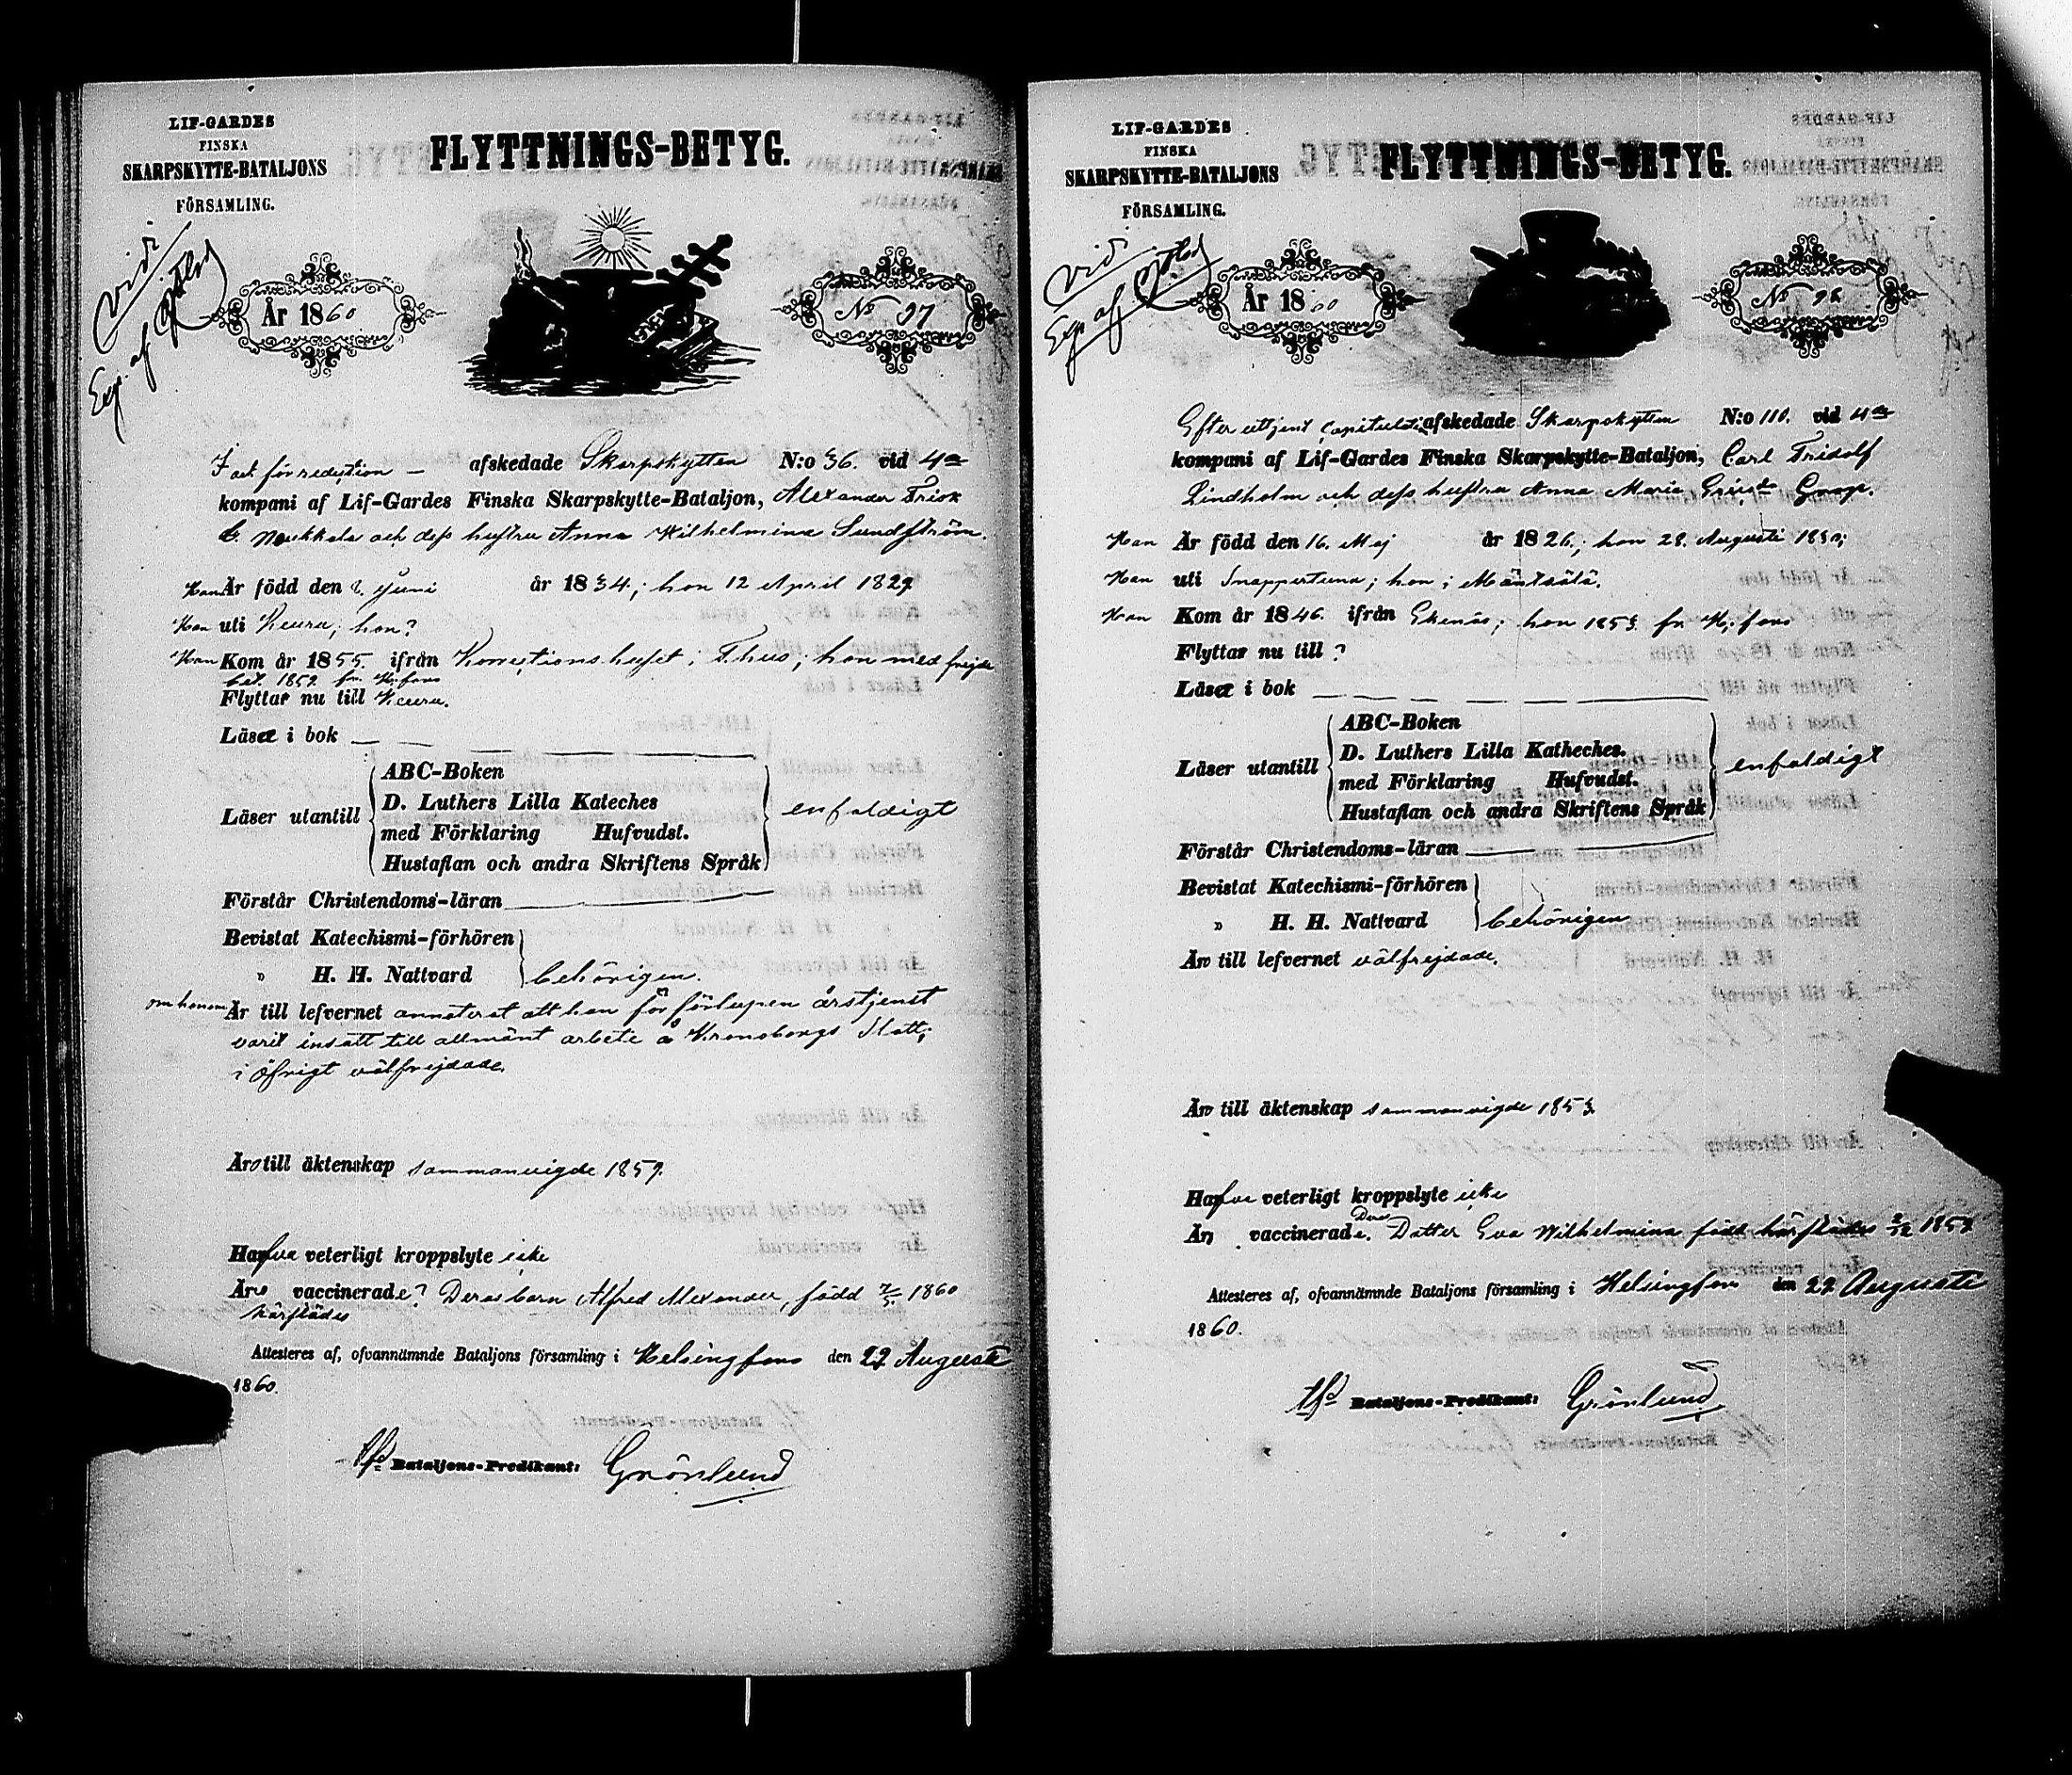 LIF-GARDES
FINSKA
SKARPSKYTTE-BATALJONS
FÖRSAMLING.
FLYTTNINGS-BETYG.
vidi
Exp. af
År 1860
No 97
I och för reduktion — afskedade Skarpskytten N:o 36. vid 4de
kompani af Lif-Gardes Finska Skarpskytte-Bataljon, Alexander
Neukkola och dess hustru Anna Wilhelmina Sundström.
Han Är född den 2. Juni år 1834; hon 12 April 1829
Han uti Keuru; hon?
Han Kom år 1855. ifrån Korrektionshuset i T.hus; hon med frejde
bet. 1859. fr. H:fors
Flyttar nu till Keuru.
Läser i bok
Läser utantill
ABC-Boken
D. Luthers Lilla Kateches
med Förklaring Hufvudst.
Hustaflan och andra Skriftens Språk
enfaldigt
Förstår Christendoms-läran
Bevistat Katechismi-förhören
" H. H. Nattvard
behörigen.
om honom Är till lefvernet annoterat att han för förlupen årstjenst
varit insatt till allmänt arbete å Kronoborgs Slott;
i öfrigt välfrejdade.
Äro till äktenskap sammanvigde 1859.
Hafva veterligt kroppslyte icke
Äro vaccinerade? Deras barn Alfred Alexander, född 7/5 1860
härstädes
Attesteres af, ofvannämnde Bataljons församling i Helsingfors den 22 Augusti
1860.
Bataljons-Predikant: Grönlund
LIF-GARDES
FINSKA
SKARPSKYTTE-BATALJONS
FÖRSAMLING.
FLYTTNINGS-BETYG.
vidi
Exp. af
År 1860
No 98
Efter uttjent capitulation afskedade Skarpskytten N:o 110. vid 4de
kompani af Lif-Gardes Finska Skarpskytte-Bataljon, Carl Fridolf
Lindholm och dess hustru Anna Maria
Han Är född den 16. Maj år 1826; hon 28. Augusti 1830;
Han uti Snappertuna; hon i Mäntsälä.
Han Kom år 1846. ifrån Ekenäs; hon 1853. fr H:fors
Flyttar nu till?
Läser i bok
Läser utantill
ABC-Boken
D. Luthers Lilla Katheches.
med Förklaring Hufvudst.
Hustaflan och andra Skriftens Språk
enfaldigt
Förstår Christendoms-läran
Bevistat Katechismi-förhören
" H. H. Nattvard
behörigen
Äro till lefvernet välfrejdade.
Äro till äktenskap sammanvigde 1853
Hafva veterligt kroppslyte icke
Äro vaccinerade. Deras Dotter Eva Wilhelmina född härstädes
Attesteres af, ofvannämnde Bataljons församling i Helsingfors den 22 Augusti
1860.
Bataljons-Predikant: Grönlund